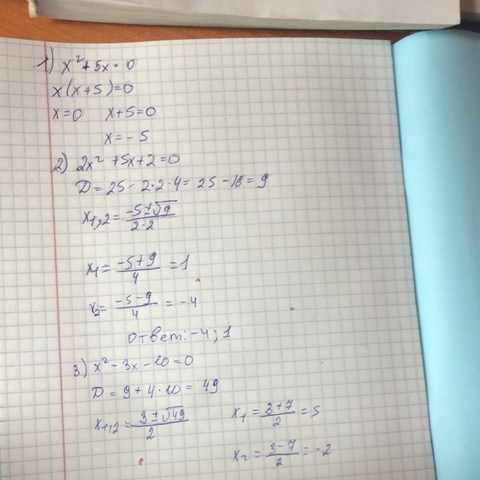 1) x² + 5x = 0
x(x+5)=0
x=0 x+5=0
x=-5
2) 2x² + 5x + 2 = 0
D = 25 - 2·2·4 = 25 - 16 = 9
x1,2 = (-5±√9)/(2·2)
x1 = (-5+9)/4 = 1
x2 = (-5-9)/4 = -4
Ответ: -4; 1
3) x² - 3x - 10 = 0
D = 9 + 4·10 = 49
x1,2 = (3±√49)/2 x1 = (3+7)/2 = 5
x2 = (3-7)/2 = -2